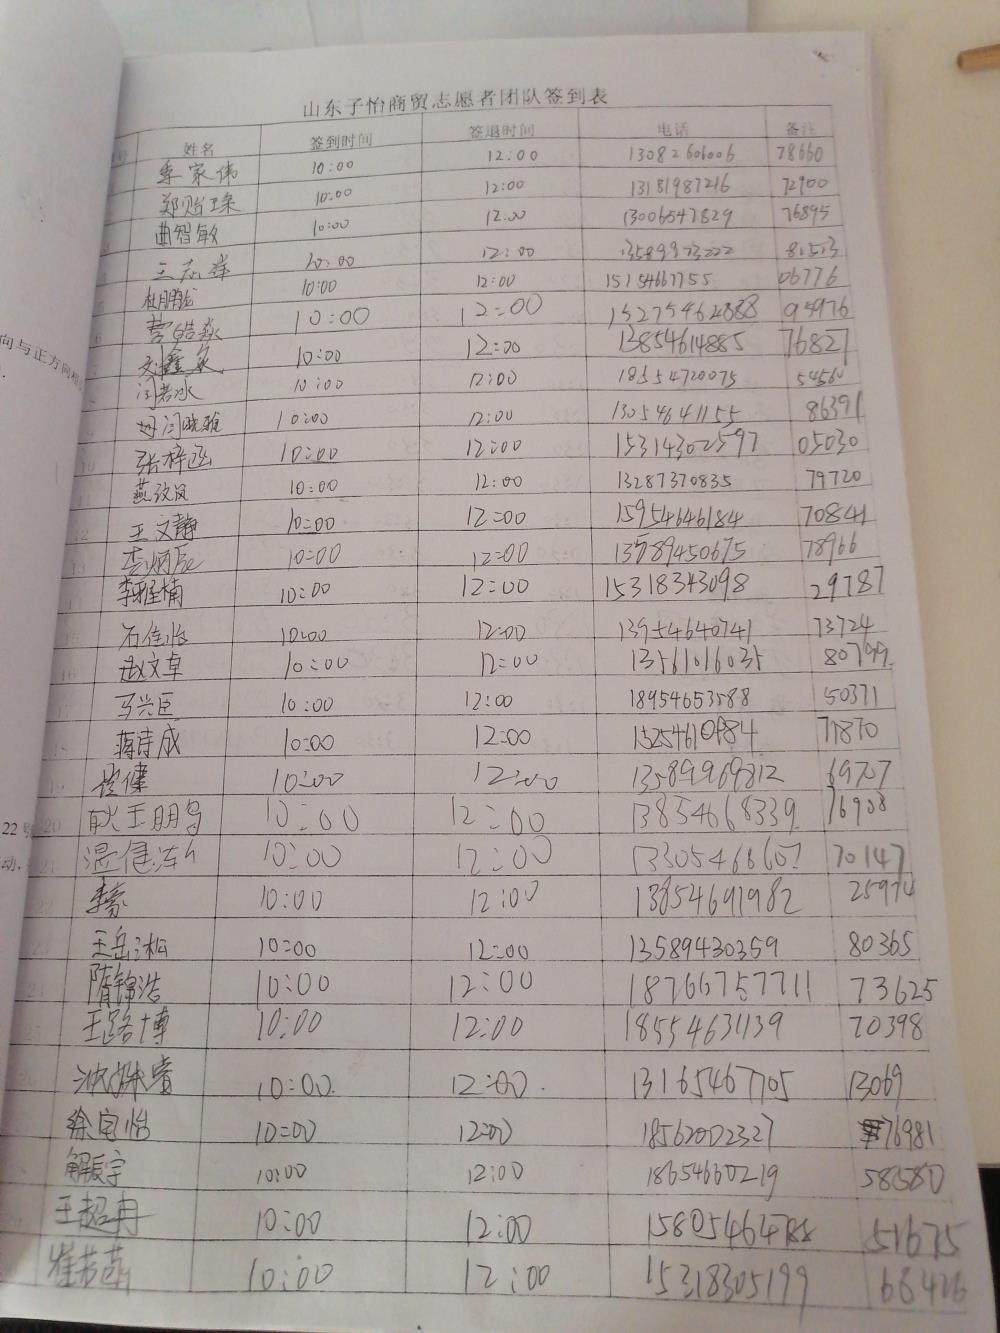 山东子怡商贸志愿者团队签到表
姓名 签到时间 签退时间 电话 备注
李家伟 10:00 12:00 13082601006 78660
郑贻璨 10:00 12:00 13181987216 72900
曲智敏 10:00 12:00 13006547829 76895
王志 10:00 12:00 13589973222 81513
杜鹏龙 10:00 12:00 15154667755 06776
曹皓焱 10:00 12:00 15275462888 95976
刘鑫 10:00 12:00 13854614885 76827
向与正方向相
闫若水 10:00 12:00 18654720075 54560
闫晓雅 10:00 12:00 13054641155 86391
10 张梓涵 10:00 12:00 15314302597 05030
11 燕 10:00 12:00 13287370835 79720
12 王文静 10:00 12:00 15954646184 70841
13 李炳辰 10:00 12:00 13589450675 78966
李雅楠 10:00 12:00 15318343098 29787
石佳怡 10:00 12:00 13954640741 73724
16 赵文卓 10:00 12:00 13561016035 80799
17 马兴臣 10:00 12:00 18954653588 50371
蒋诗成 10:00 12:00
健 10:00 12:00 13589969812 69707
22 20 耿王明 10:00 12:00 13854668339 76908
动, 21 温健 10:00 12:00 13305466607 70147
22 李豪 10:00 12:00 13854691982 25974
23 王岳淞 10:00 12:00 13589430359 80365
24 隋锦浩 10:00 12:00 18766757711 73625
25 王路博 10:00 12:00 18554631139 70398
10:00 12:00 13165467705 13069
徐宝怡 10:00 12:00 18562002327 76981
解辰宇 10:00 12:00 18654660219 58580
王超冉 10:00 12:00 15805464788 51675
崔若萌 10:00 12:00 15318305199 68426